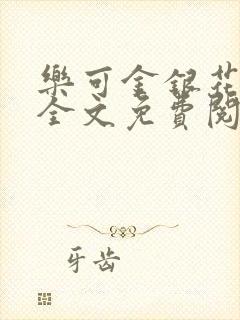 樂可金銀花
全文免費閱
牙齿